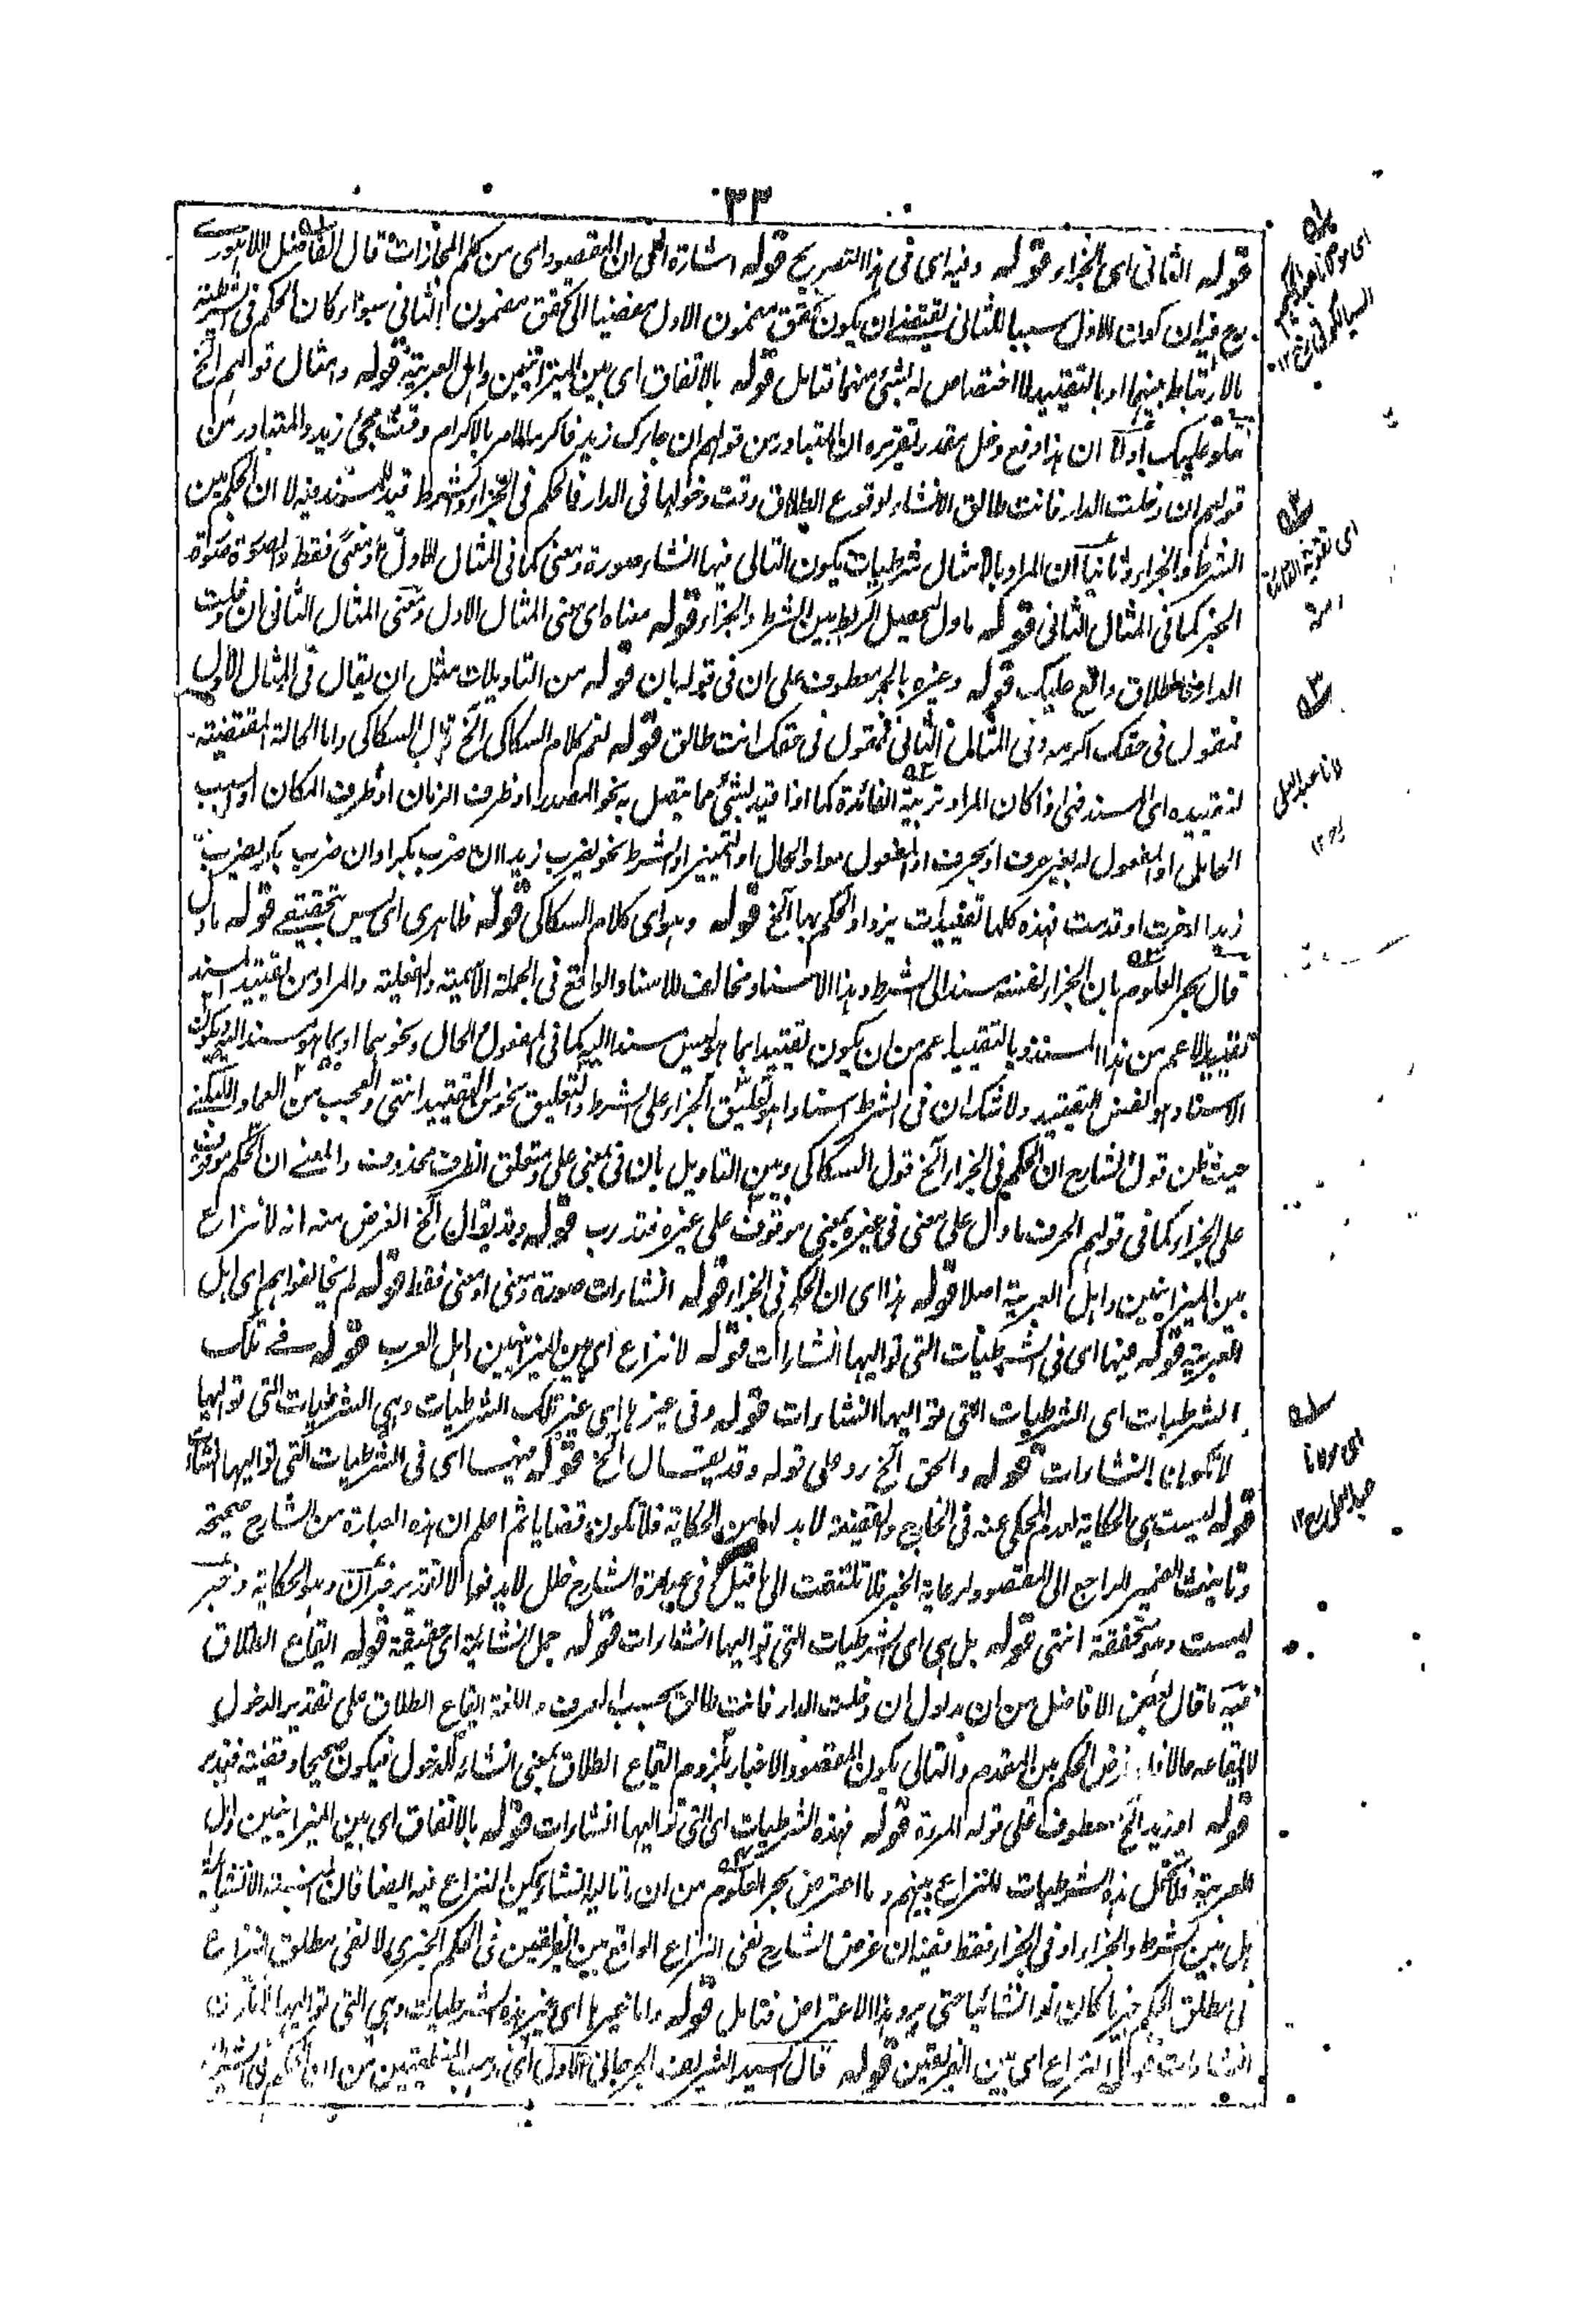 ٣٣
قوله الثانى اى الجزاء قوله وفيه اى فى هذا التصريح قوله اشارة الى ان المقصود اى من كلم المجازات قال الفاضل اللاهورى
فيه ان كون الاول سببا للثانى يقتضى ان يكون تحقق مضمون الاول مفضيا الى تحقق مضمون الثانى سواء كان الحكم فى الشرطية
بالارتباط بينهما او بالتقييد لا اختصاص له بشئ منهما فتامل قوله بالاتفاق اى بين الميزانيين واهل العربية قوله وامثال قولهم الخ
نتلو عليك اولا ان هذا دفع دخل مقدر تقريره ان المتبادر من قولهم ان جاءك زيد فاكرمه الامر بالاكرام وقت مجئ زيد والمتبادر من
قولهم ان دخلت الدار فانت طالق الانشاء لوقوع الطلاق وقت دخولها فى الدار فالحكم فى الجزاء والشرط قيد للمسند فيه لا ان الحكم بين
الشرط والجزاء وثانيا ان المراد بالامثال شرطيات يكون التالى فيها انشاء صورة ومعنى كما فى المثال الاول او معنى فقط والصورة صورة
الخبر كما فى المثال الثانى قوله ماول لتحصيل الربط بين الشرط والجزاء قوله معناه اى معنى المثال الاول ومعنى المثال الثانى ان دخلت
الدار فالطلاق واقع عليك قوله وغيره بالجر معطوف على ان فى قوله بان قوله من التاويلات مثل ان يقال فى المثال الاول
فنقول فى حقك اكرمه وفى المثال الثانى فنقول فى حقك انت طالق قوله نعم كلام السكاكى الخ قال السكاكى واما الحالة المقتضية
لتقييده اى المسند فهى اذا كان المراد تربية الفائدة كما اذا قيد بشئ مما يتصل به نحو المصدر او ظرف الزمان او ظرف المكان او السبب
الحامل او المفعول له بغير حرف او بحرف او المفعول معه او الحال او التمييز او الشرط نحو يضرب زيد ان ضرب بكر او ان ضرب بكر يضرب
زيد اخرت او قدمت فهذه كلها تقييدات يزداد الحكم بها الخ قوله وهو اى كلام السكاكى قوله ظاهرى اى ليس تحقيقى قوله ماول
قال بحر العلوم بان الجزاء لفنسه مسند الى الشرط وهذا الاسناد مخالف للاسناد الواقع فى الجملة الاسمية والفعلية والمراد من تقييد المسند
تقييد الاعم من هذا المسند وبالتقييد اعم من ان يكون تقييدا بما هو ليس مسندا اليه كما فى المفعول والحال ونحوهما او بما هو مسند اليه ويكون
الاسناد هو نفس التقييد ولا شك ان فى الشرط اسنادا هو تعليق الجزاء على الشرط والتعليق نحو من التقييد انتهى والعجب من العماد اللبكنى
حيث ظن قول الشارح ان الحكم فى الجزاء الخ قول السكاكى وبين التاويل بان فى بمعنى على ومتعلق الظرف محذوف والمعنى ان الحكم موقوف
على الجزاء كما فى قولهم الحرف ما دل على معنى فى غيره بمعنى موقوف على غيره فتدرب قوله وقد يقال الخ الغرض منه انه لا نزاع
بين الميزانيين واهل العربية اصلا قوله هذا اى ان الحكم فى الجزاء قوله انشاءات صورة ومعنى او معنى فقط قوله لم يخالفوا هم اى اهل
العربية قوله فيها اى فى الشرطيات التى تواليها انشاءات قوله لا نزاع اى بين الميزانيين اهل العرب قوله فى تلك
الشرطيات اى الشرطيات التى تواليها انشاءات قوله وفى غيرها اى غير تلك الشرطيات وهى الشرطيات التى تواليها
لا تكون انشاءات قوله والحق الخ رد على قوله وقد يقال الخ قوله فيها اى فى الشرطيات التى تواليها انشاء
قوله ليست هى الحكاية لعدم المحكى عنه فى الخارج والقضية لا بد لها من الحكاية فلا تكون قضايا ثم اعلم ان هذه العبارة من الشارح صحيحة
وتانيث الضمير الراجع الى المقصود لرعاية الخبر فلا تلتفت الى ما قيل فى عبارة الشارح خلل لا يدفع الا بتقدير خبر ان وهو الحكاية وخبر
ليست وهو متحققة انتهى قوله بل هى اى الشرطيات التى تواليها انشاءات قوله جمل انشائية اى حقيقة قوله ايقاع الطلاق
فيه ما قال بعض الافاضل من ان مدلول ان دخلت الدار فانت طالق بحسب العرف واللغة ايقاع الطلاق على تقدير الدخول
لا ايقاعه حالا فاذا فرض الحكم بين المقدم والتالى يكون المقصود الاخبار بلزوم ايقاع الطلاق بمعنى انشائه للدخول فيكون صحيحا وقضية فتدبر
قوله او زيد الخ معطوف على قوله المرءة قوله فهذه الشرطيات اى التى تواليها انشاءات قوله بالاتفاق اى بين الميزانيين واهل
العربية فلا تحمل هذه الشرطيات للنزاع بينهم وما اعترض بحر العلوم من ان ما تاليه انشاء يمكن النزاع فيه ايضا فان النسبة الانشائية
هل بين الشرط والجزاء او فى الجزاء فقط ففيه ان غرض الشارح نفى النزاع الواقع بين الفريقين فى الحكم الخبرى لا نفى مطلق النزاع
فى مطلق الحكم خبريا كان او انشائيا حتى يرد هذا الاعتراض فتامل قوله واما غيرها اى غير هذه الشرطيات وهى التى تواليها لا تكون
انشاءات قوله لا نزاع اى بين الفريقين قوله قال السيد الشريف الجرجانى الاول اى مذهب المنطقيين من ان الحكم فى الشرطية
اى مولانا عبد الحكيم
السيالكوتى رح ١٢
اى تقوية الفائدة
منه
لانا عبد العلى
رح ١٢
اى مولانا
عبد العلى رح ١٢